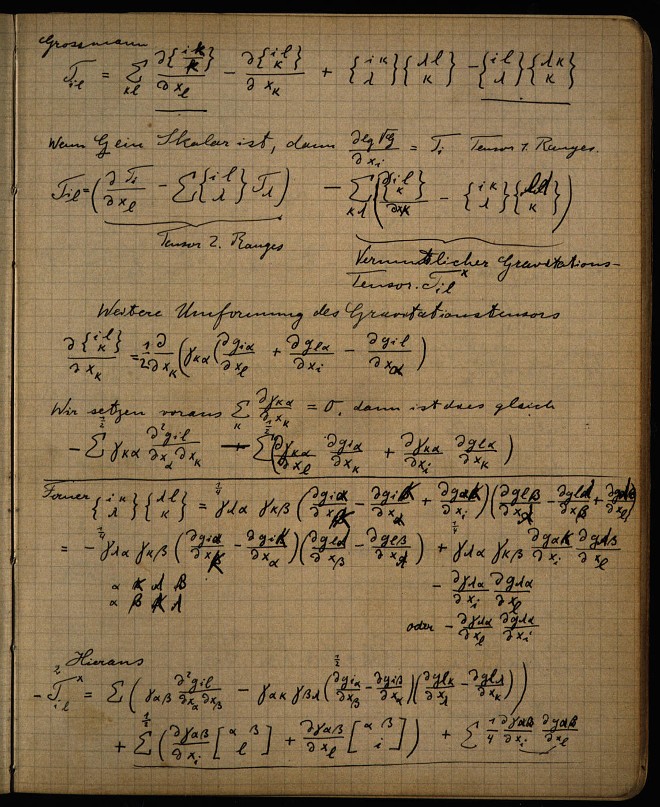 Grossmann
T_il = Σ_κl ∂{i κ / κ}/∂x_l − ∂{i l / κ}/∂x_κ + {i κ / λ}{λ l / κ} − {i l / λ}{λ κ / κ}
Wenn G ein Skalar ist, dann ∂lg√G/∂x_i = T_i Tensor 1. Ranges.
T_il = (∂T_i/∂x_l − Σ{i l / λ} T_λ) − Σ_κλ (∂{i l / κ}/∂x_κ − {i κ / λ}{λ l / κ})
Tensor 2. Ranges
Vermutlicher Gravitations-
Tensor. T_il^x
Weitere Umformung des Gravitationstensors
∂{i l / κ}/∂x_κ = 1/2 ∂/∂x_κ (γ_κα (∂g_iα/∂x_l + ∂g_lα/∂x_i − ∂g_il/∂x_α)
Wir setzen voraus Σ_κ ∂γ_κα/∂x_κ = 0, dann ist dies gleich
− 1/2 Σ γ_κα ∂²g_il/∂x_α∂x_κ + 1/2 Σ(∂γ_κα/∂x_l ∂g_iα/∂x_κ + ∂γ_κα/∂x_i ∂g_lα/∂x_κ)
Ferner {i κ / λ}{λ l / κ} = 1/4 γ_λα γ_κβ (∂g_iα/∂x_κ − ∂g_iκ/∂x_α + ∂g_ακ/∂x_i)(∂g_lβ/∂x_λ − ∂g_lλ/∂x_β + ∂g_λβ/∂x_l)
= − 1/4 γ_λα γ_κβ (∂g_iα/∂x_κ − ∂g_iκ/∂x_α)(∂g_lλ/∂x_β − ∂g_lβ/∂x_λ) + 1/4 γ_λα γ_κβ ∂g_ακ/∂x_i ∂g_λβ/∂x_l
α κ λ β
α β κ λ
− ∂γ_λα/∂x_i ∂g_λα/∂x_l
oder − ∂γ_λα/∂x_l ∂g_λα/∂x_i
Hieraus
− 2 T_il^x = Σ(γ_αβ ∂²g_il/∂x_α∂x_β − 1/2 γ_ακ γ_βλ (∂g_iα/∂x_β − ∂g_iβ/∂x_α)(∂g_lκ/∂x_λ − ∂g_lλ/∂x_κ))
+ 1/2 Σ(∂γ_αβ/∂x_i [α β / l] + ∂γ_αβ/∂x_l [α β / i]) + Σ 1/4 ∂γ_αβ/∂x_i ∂g_αβ/∂x_l